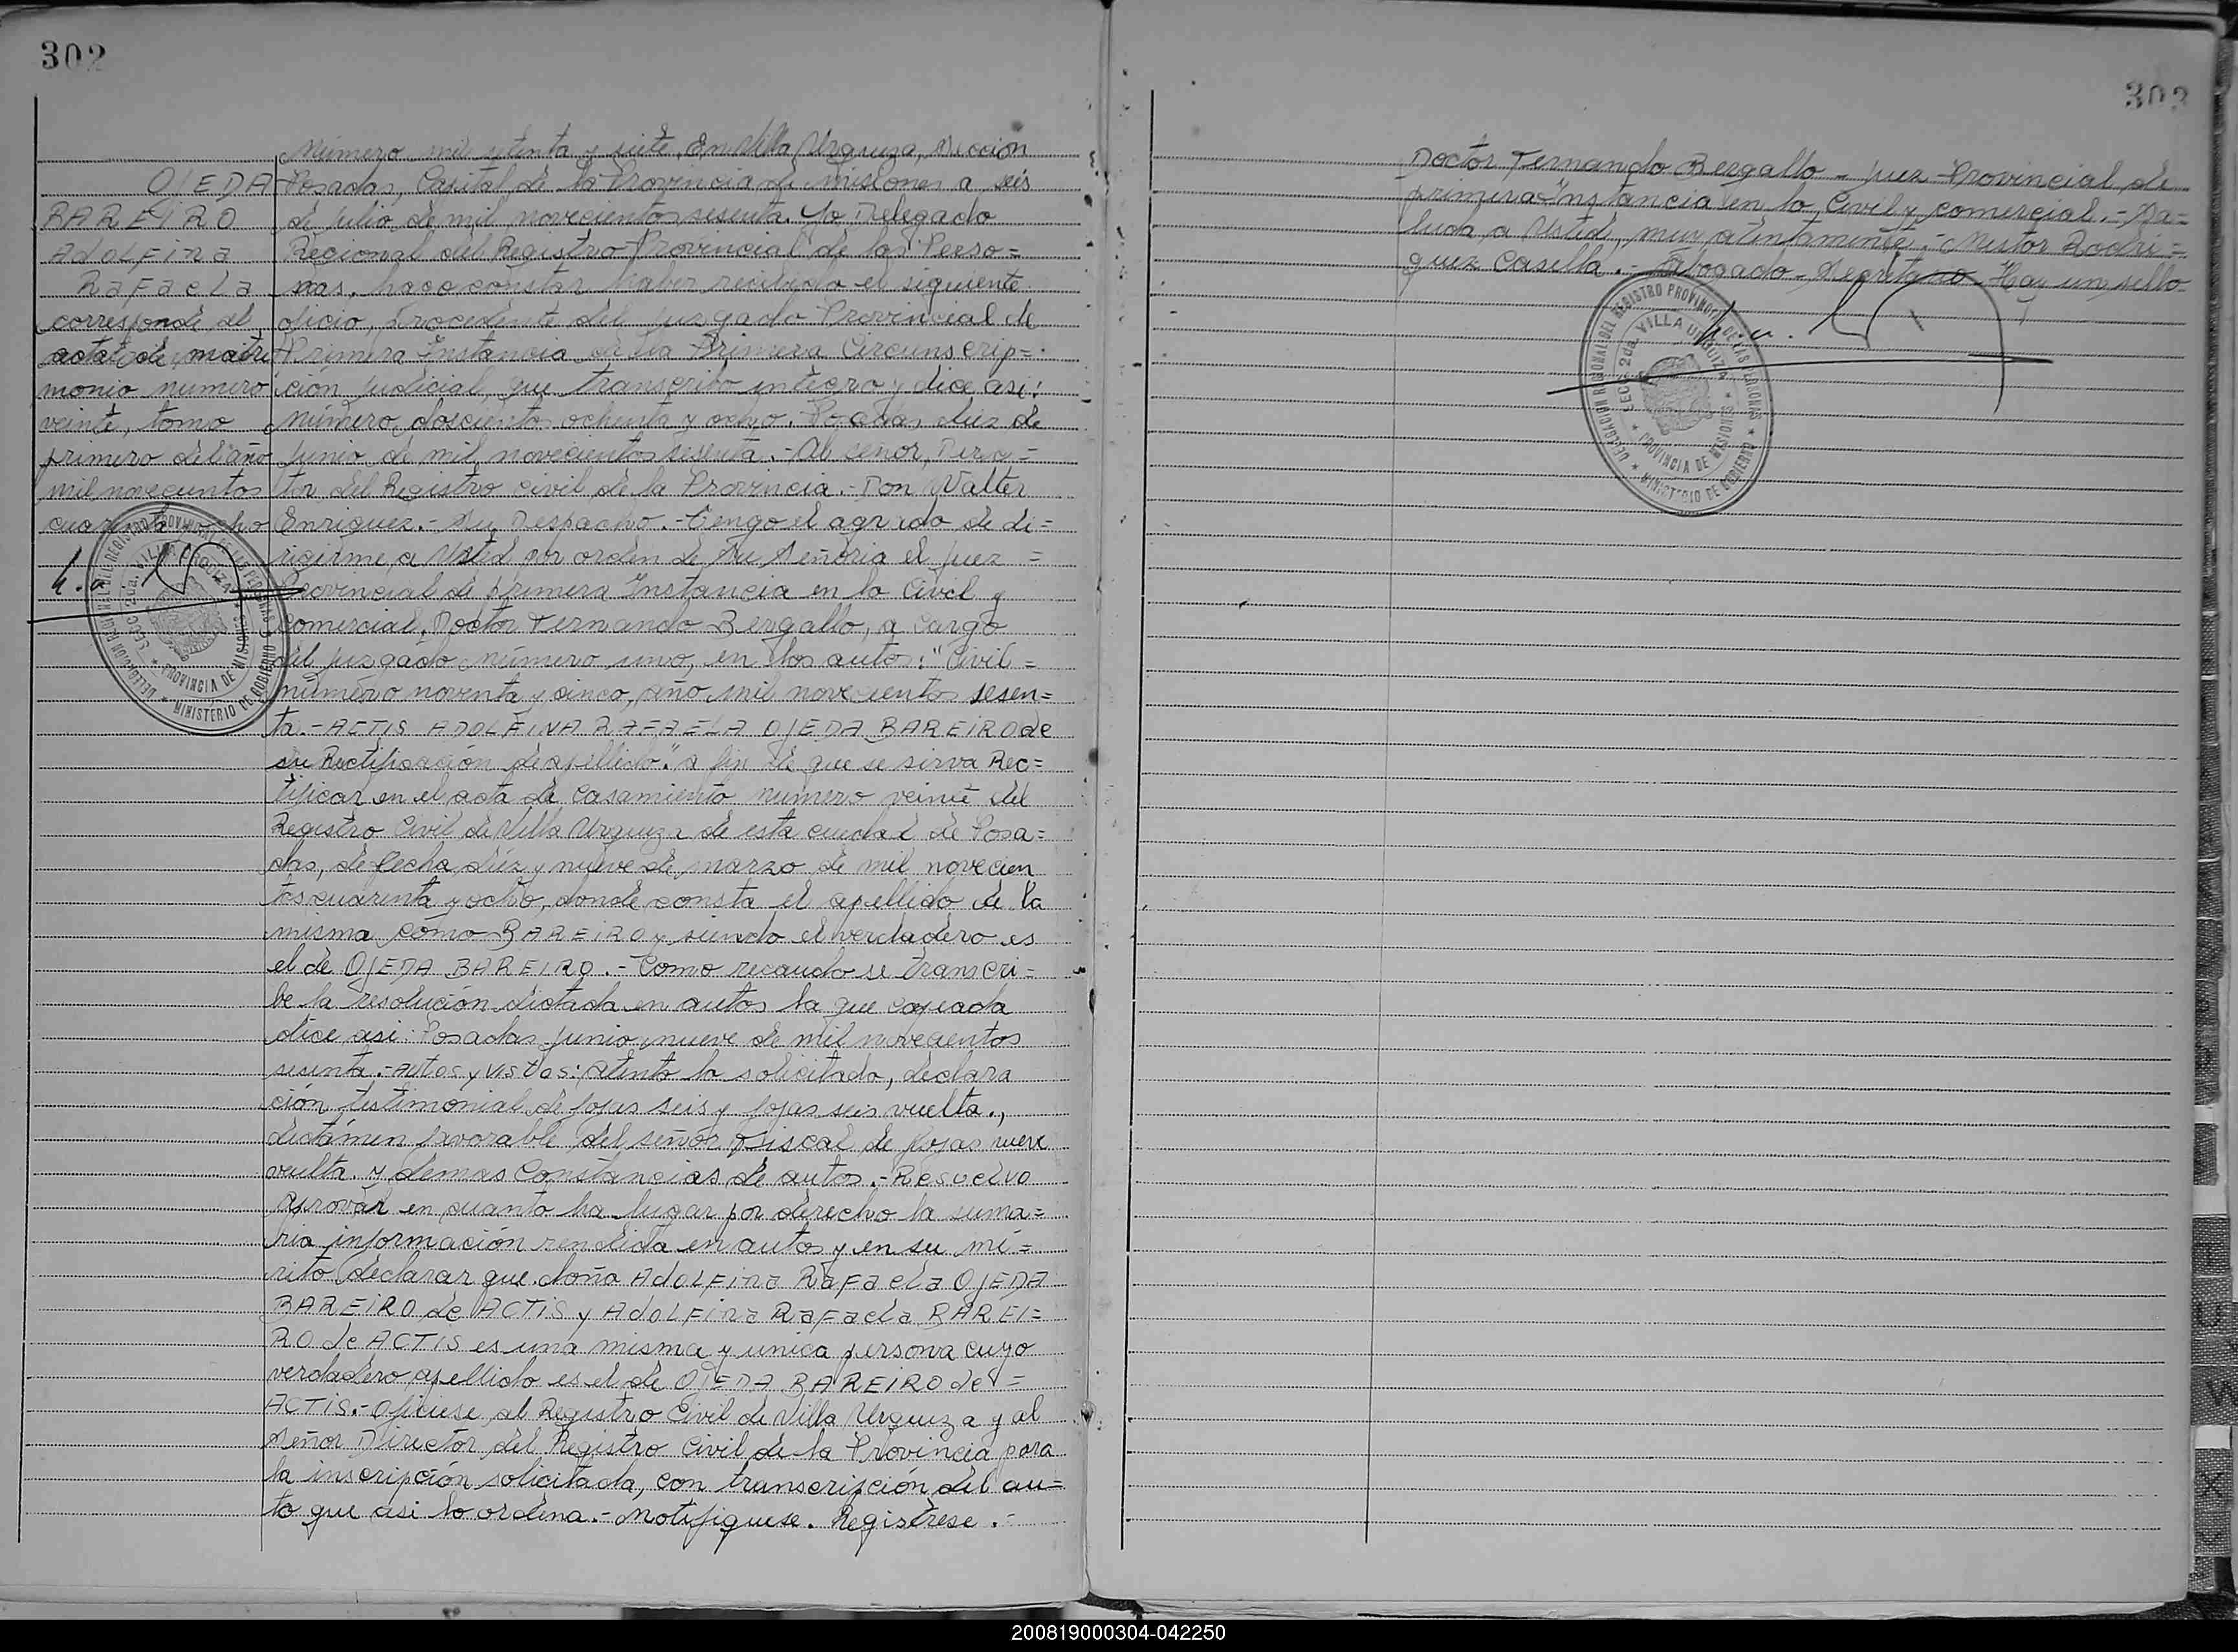 302
Número mil setenta y siete. En Villa Urquiza, Sección
Posadas, Capital de la Provincia de Misiones a seis
de Julio de mil novecientos sesenta. Yo Delegado
Regional del Registro Provincial de las Perso=
nas, hago constar haber recibido el siguiente
oficio, procedente del Juzgado Provincial de
Primera Instancia de la Primera Circunscrip=
ción Judicial, que transcribo integro y dice asi:
Número doscientos ochenta y ocho. Posadas diez de
Junio de mil novecientos sesenta.- Al señor, Direc=
tor del Registro Civil de la Provincia.- Don Walter
Enriquez.- Su Despacho.- Tengo el agrado de di=
rigirme a Usted por orden de Su Señoria el Juez =
Provincial de primera Instancia en lo Civil y
Comercial, Doctor Fernando Bergallo, a cargo
del Juzgado Número uno, en los autos: "Civil =
número noventa y cinco, año mil novecientos sesen=
ta.- ACTIS ADOLFINA RAFAELA OJEDA BAREIRO de
su Rectificación de apellido". a fin de que se sirva Rec=
tificar en el acta de casamiento numero veinte del
Registro Civil de Villa Urquiza de esta ciudad de Posa=
das, de fecha diéz y nueve de marzo de mil novecien
tos cuarenta y ocho, donde consta el apellido de la
misma como BAREIRO y siendo el verdadero es
el de OJEDA BAREIRO.- Como recaudo se transcri=
be la resolución dictada en autos la que copiada
dice asi: Posadas Junio nueve de mil novecientos
sesenta.- Autos y Vistos: Atento lo solicitado, declara
ción testimonial de fojas seis y fojas seis vuelta.,
dictámen favorable del señor fiscal de fojas nueve
vuelta y demas Constancias de autos.- Resuelvo
aprovar en cuanto ha lugar por derecho la suma=
ria información rendida en autos y en su mé=
rito declarar que doña Adolfina Rafaela OJEDA
BAREIRO de ACTIS y Adolfina Rafaela BAREI=
RO de ACTIS es una misma y unica persona cuyo
verdadero apellido es el de OJEDA BAREIRO de =
ACTIS.- Ofíciese al Registro Civil de Villa Urquiza y al
Señor Director del Registro Civil de la Provincia para
la inscripción solicitada, con transcripción del au=
to que asi lo ordena.- Notifiquese. Registrese.-
OJEDA
BAREIRO
Adolfina
Rafaela
corresponde al
acta de matri
monio numero
veinte, tomo
primero del año
mil novecientos
cuarenta y ocho
DELEGACION REGIONAL DEL REGISTRO PROVINCIAL DE LAS PERSONAS
SECC. 2da. VILLA URQUIZA
PROVINCIA DE MISIONES
MINISTERIO DE GOBIERNO
303
Doctor Fernando Bergallo - Juez Provincial de
primera Instancia en lo Civil y comercial.- Sa=
luda a Usted, muy atentamente.- Nestor Rodri=
guez Casella.- Abogado - Secretario - Hay un sello
DELEGACION REGIONAL DEL REGISTRO PROVINCIAL DE LAS PERSONAS
SECC. 2da. VILLA URQUIZA
PROVINCIA DE MISIONES
MINISTERIO DE GOBIERNO
T
U
V
X
200819000304-042250